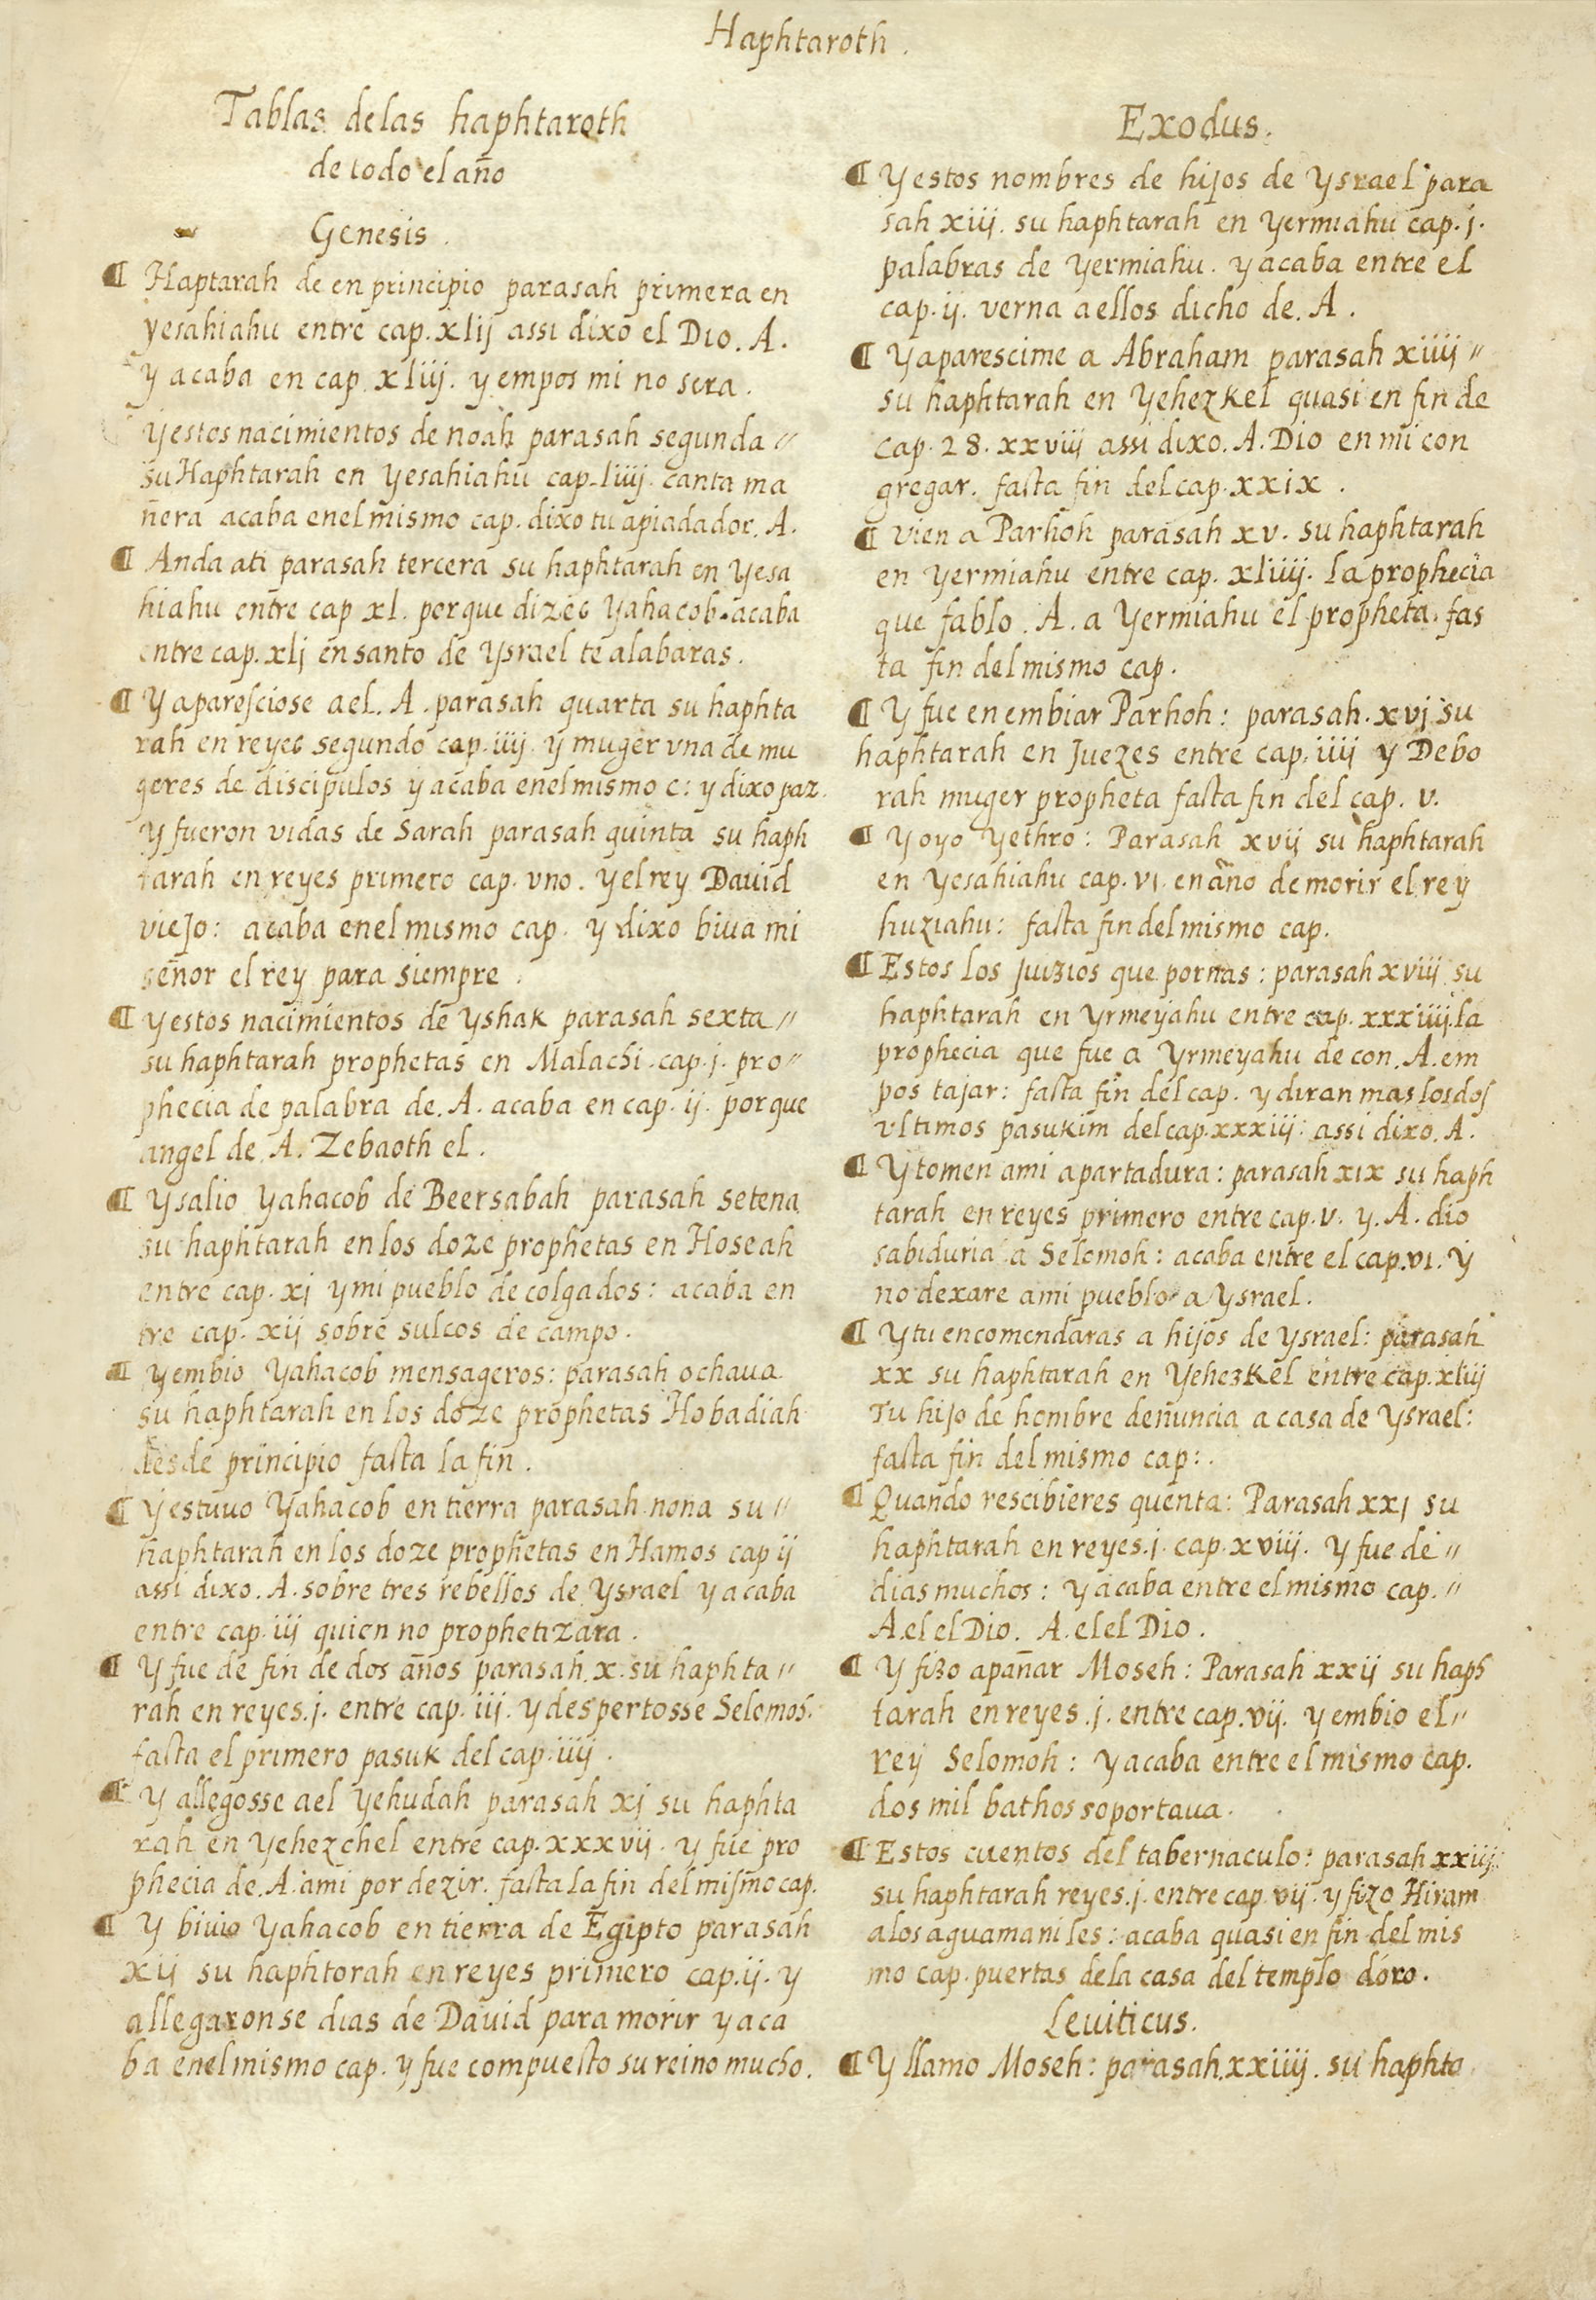 Haphtaroth.
Tablas delas haphtaroth
de todo el año
Genesis.
¶ Haptarah de en principio parasah primera en
yesahiahu entre cap. xlij assi dixo el Dio. A.
y acaba en cap. xliij. y empos mi no sera.
yestos nacimientos de noah parasah segunda //
su Haphtarah en yesahiahu cap. liiij. canta ma
ñera acaba enel mismo cap. dixo tu apiadador. A.
¶ Anda ati parasah tercera su haphtarah en yesa
hiahu entre cap xl. porque dizes yahacob. acaba
entre cap. xlj en santo de ysrael te alabaras.
¶ Y aparesciose ael. A. parasah quarta su haphta
rah en reyes segundo cap. iiij. y muger vna de mu
geres de discipulos y acaba enel mismo c: y dixo paz.
y fueron vidas de Sarah parasah quinta su haph
tarah en reyes primero cap. vno. y el rey Dauid
viejo: acaba enel mismo cap. y dixo biua mi
señor el rey para siempre.
¶ yestos nacimientos de yshak parasah sexta //
su haphtarah prophetas en Malachi. cap. j. pro //
phecia de palabra de. A. acaba en cap. ij. porque
angel de. A. Zebaoth el.
¶ Y salio yahacob de Beersabah parasah setena
su haphtarah en los doze prophetas en Hoseah
entre cap. xj y mi pueblo de colgados: acaba en
tre cap. xij sobre sulcos de campo.
¶ yembio yahacob mensageros: parasah ochaua
su haphtarah en los doze prophetas Hobadiah
desde principio fasta la fin.
¶ yestuuo yahacob en tierra parasah nona su //
haphtarah en los doze prophetas en Hamos cap ij
assi dixo. A. sobre tres rebellos de ysrael y acaba
entre cap. iij quien no prophetizara.
¶ Y fue de fin de dos años parasah. x. su haphta //
rah en reyes. j. entre cap. iij. y despertosse Selomoh.
fasta el primero pasuk del cap. iiij.
¶ Y allegosse ael yehudah parasah xj su haphta
rah en yehezchel entre cap. xxxvij. y fue pro
phecia de. A. ami por dezir. fasta la fin del mismo cap.
¶ Y biuio yahacob en tierra de Egipto parasah
xij su haphtorah en reyes primero cap. ij. y
allegaronse dias de Dauid para morir y aca
ba enel mismo cap. y fue compuesto su reino mucho.
Exodus.
¶ Yestos nombres de hijos de ysrael para
sah xiij. su haphtarah en yermiahu cap. j.
palabras de yermiahu. y acaba entre el
cap. ij. verna aellos dicho de. A.
¶ Yaparescime a Abraham parasah xiiij //
su haphtarah en yehezkel quasi en fin de
cap. 28. xxviij assi dixo. A. Dio en mi con
gregar. fasta fin del cap. xxix.
¶ Vien a Parhoh parasah xv. su haphtarah
en yermiahu entre cap. xliiij. la prophecia
que fablo. A. a yermiahu el propheta. fas
ta fin del mismo cap.
¶ Y fue en embiar Parhoh: parasah. xvj su
haphtarah en Juezes entre cap. iiij y Debo
rah muger propheta fasta fin del cap. v.
¶ Yoyo yethro: Parasah xvij su haphtarah
en yesahiahu cap. vi. en año de morir el rey
huziahu: fasta fin del mismo cap.
¶ Estos los Juizios que pornas: parasah xviij su
haphtarah en yrmeyahu entre cap. xxxiiij. la
prophecia que fue a yrmeyahu de con. A. em
pos tajar: fasta fin del cap. y diran mas los dos
vltimos pasukim del cap. xxxiij: assi dixo. A.
¶ Y tomen ami apartadura: parasah xix su haph
tarah en reyes primero entre cap. v. y. A. dio
sabiduria a Selomoh: acaba entre el cap. vi. y
no dexare ami pueblo a ysrael.
¶ Y tu encomendaras a hijos de ysrael: parasah
xx su haphtarah en yehezkel entre cap. xliij
Tu hijo de hombre denuncia a casa de ysrael:
fasta fin del mismo cap:.
¶ Quando rescibieres quenta: Parasah xxj su
haphtarah en reyes. j. cap. xviij. y fue de //
dias muchos: y acaba entre el mismo cap. //
A. el el Dio. A. el el Dio.
¶ Y fizo apañar Moseh: Parasah xxij su haph
tarah en reyes. j. entre cap. vij. y embio el //
rey Selomoh: y acaba entre el mismo cap.
dos mil bathos soportaua.
¶ Estos cuentos del tabernaculo: parasah xxiij.
su haphtarah reyes. j. entre cap. vij. y fizo Hiram
alos aguamaniles: acaba quasi en fin del mis
mo cap. puertas dela casa del templo dóro.
Leuiticus.
¶ Y llamo Moseh: parasah. xxiiij. su haphta